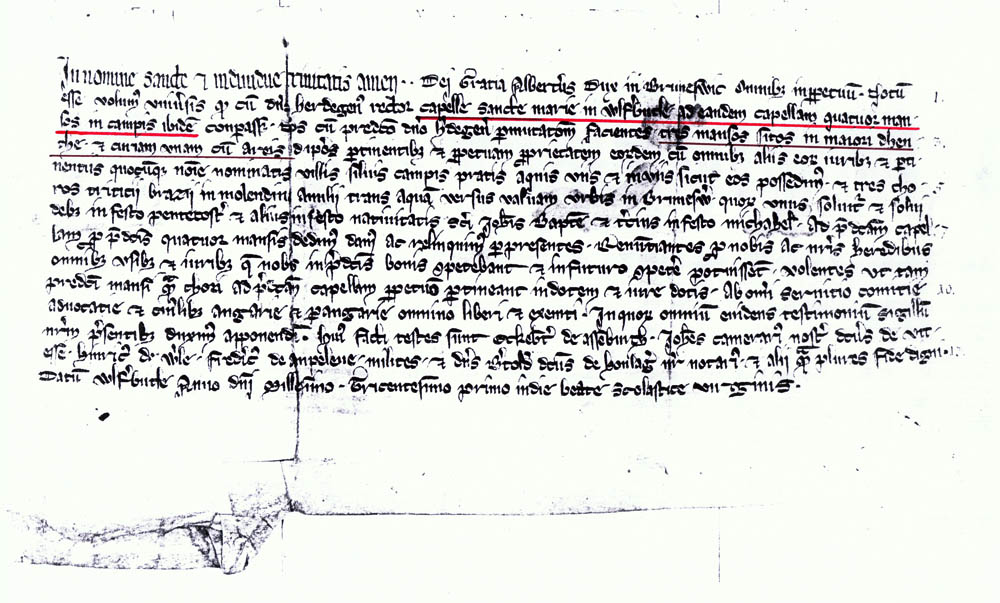 In nomine sancte et individue trinitatis amen. Dei Gratia Albertus Dux in Bruneswic Omnibus inperpetuum. Notum
esse volumus universis qd cum dno herdegeno rectore capelle sancte marie in wlferbutle ad eandem capellam quatuor man
sos in campis ibidem conparass; nos cum predicto dno herdegeno permutationem facientes tres mansos sitos in maiori dhen
the et curiam unam cum areis dipos pertinentibus et perpetuam proprietatem eorundem cum omnibus aliis eorum iuribus et perti
nentiis quocumque nomine nominatis villis silvis campis pratis aquis viis et inviis sicut eos possedimus et tres cho
ros triticii brazii in molendini Annilii trans aquam versus valvam urbis in Bruneswic quorum unus solvitur et solvi
debet in festo pentecostes et alius in festo nativitatis sancti Johannis Baptiste et tercius in festo michahelis. Ad predictam capel
lam pro predictis quatuor mansis dedimus damus ac relinquimus per presentes. Renuntiantes pro nobis ac nostris heredibus
omnibus usibus et iuribus que nobis in predictis bonis competebant et in futuro competere potuissent. volentes ut tam
predicti mansi quam chori ad predictam capellam perpetuo pertineant in dotem et iure dotis. Ab omni servitio comitie
advocatie et cuiuslibet angarie et perangarie omnino liberi et exempti. In quorum omnium evidens testimonium sigillum
nostrum presentibus duximus apponendum. Huius facti testes sunt Ecbertus de asseburch. Johannes camerarius noster dictus de
esse. Hinricus de wle. Fredericus de ampeleve milites et dns Bertoldus dictus de honlage noster notarius et alii quam plures fide digni.
Datum wlferbutle Anno dni Millesimo Tricentesimo primo in die beate Scolastice virginis.